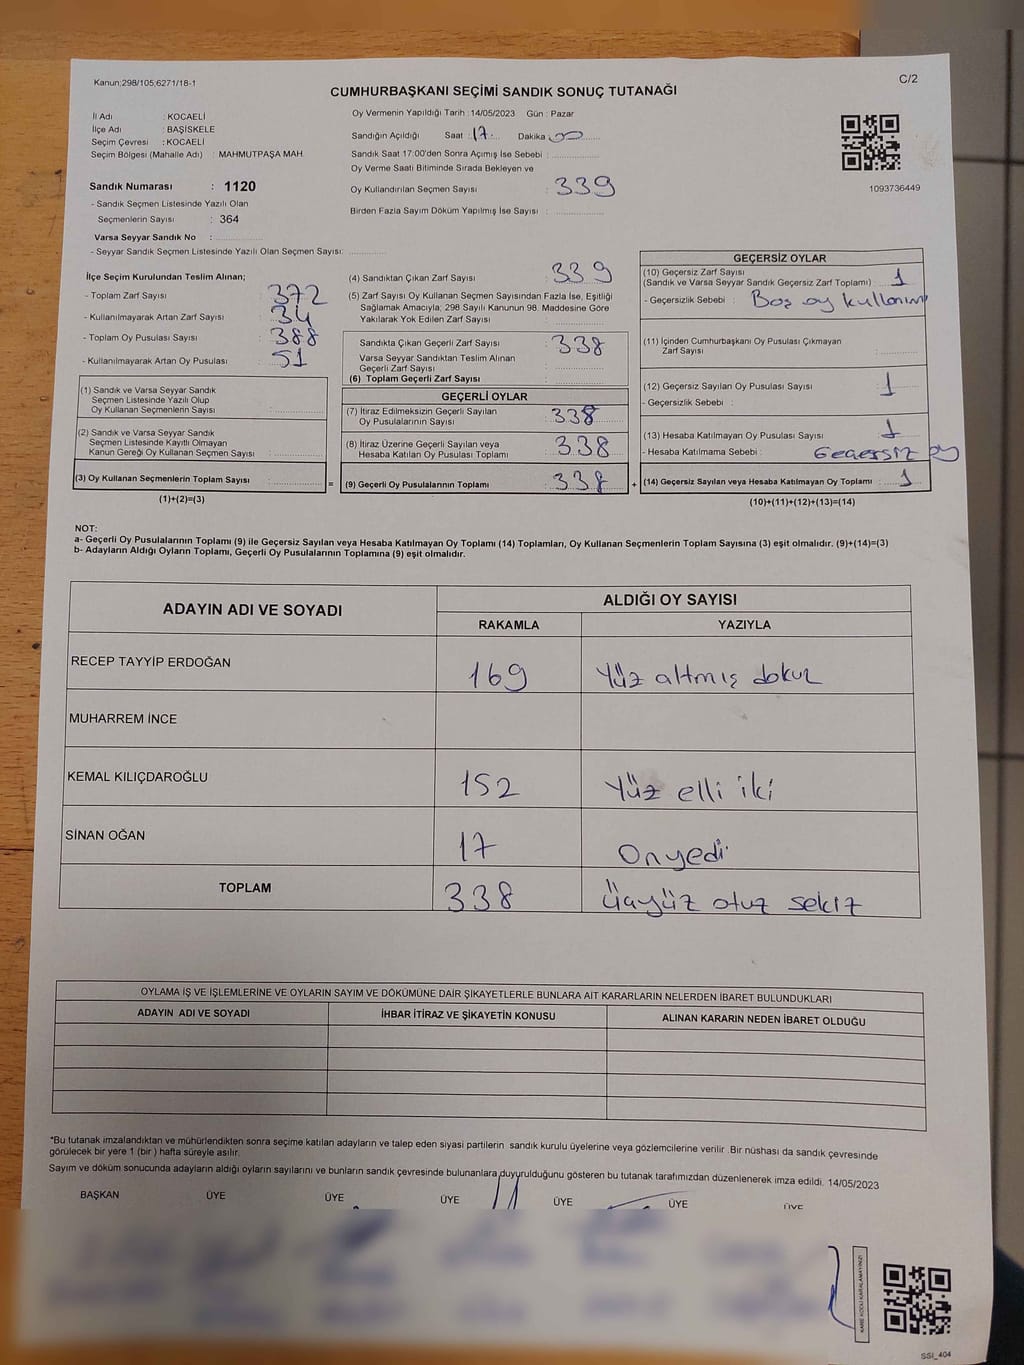 Kanun;298/105;6271/18-1
C/2
CUMHURBAŞKANI SEÇİMİ SANDIK SONUÇ TUTANAĞI
İl Adı : KOCAELİ
İlçe Adı : BAŞİSKELE
Seçim Çevresi : KOCAELİ
Seçim Bölgesi (Mahalle Adı) : MAHMUTPAŞA MAH.
Sandık Numarası : 1120
- Sandık Seçmen Listesinde Yazılı Olan
Seçmenlerin Sayısı : 364
Varsa Seyyar Sandık No :
- Seyyar Sandık Seçmen Listesinde Yazılı Olan Seçmen Sayısı:
Oy Vermenin Yapıldığı Tarih : 14/05/2023 Gün : Pazar
Sandığın Açıldığı Saat : 17 Dakika : 00
Sandık Saat 17:00'den Sonra Açımış İse Sebebi :
Oy Verme Saati Bitiminde Sırada Bekleyen ve
Oy Kullandırılan Seçmen Sayısı : 339
Birden Fazla Sayım Döküm Yapılmış İse Sayısı :
1093736449
İlçe Seçim Kurulundan Teslim Alınan;
- Toplam Zarf Sayısı : 372
- Kullanılmayarak Artan Zarf Sayısı : 34
- Toplam Oy Pusulası Sayısı : 388
- Kullanılmayarak Artan Oy Pusulası : 51
(1) Sandık ve Varsa Seyyar Sandık
Seçmen Listesinde Yazılı Olup
Oy Kullanan Seçmenlerin Sayısı :
(2) Sandık ve Varsa Seyyar Sandık
Seçmen Listesinde Kayıtlı Olmayan
Kanun Gereği Oy Kullanan Seçmen Sayısı :
(3) Oy Kullanan Seçmenlerin Toplam Sayısı :
(1)+(2)=(3)
(4) Sandıktan Çıkan Zarf Sayısı : 339
(5) Zarf Sayısı Oy Kullanan Seçmen Sayısından Fazla İse, Eşitliği
Sağlamak Amacıyla; 298 Sayılı Kanunun 98. Maddesine Göre
Yakılarak Yok Edilen Zarf Sayısı :
Sandıkta Çıkan Geçerli Zarf Sayısı : 338
Varsa Seyyar Sandıktan Teslim Alınan
Geçerli Zarf Sayısı :
(6) Toplam Geçerli Zarf Sayısı :
GEÇERLİ OYLAR
(7) İtiraz Edilmeksizin Geçerli Sayılan
Oy Pusulalarının Sayısı : 338
(8) İtiraz Üzerine Geçerli Sayılan veya
Hesaba Katılan Oy Pusulası Toplamı : 338
(9) Geçerli Oy Pusulalarının Toplamı : 338
=
+
GEÇERSİZ OYLAR
(10) Geçersiz Zarf Sayısı
(Sandık ve Varsa Seyyar Sandık Geçersiz Zarf Toplamı) : 1
- Geçersizlik Sebebi : Boş oy kullanım
(11) İçinden Cumhurbaşkanı Oy Pusulası Çıkmayan
Zarf Sayısı :
(12) Geçersiz Sayılan Oy Pusulası Sayısı : 1
- Geçersizlik Sebebi :
(13) Hesaba Katılmayan Oy Pusulası Sayısı : 1
- Hesaba Katılmama Sebebi : Geçersiz oy
(14) Geçersiz Sayılan veya Hesaba Katılmayan Oy Toplamı : 1
(10)+(11)+(12)+(13)=(14)
NOT:
a- Geçerli Oy Pusulalarının Toplamı (9) ile Geçersiz Sayılan veya Hesaba Katılmayan Oy Toplamı (14) Toplamları, Oy Kullanan Seçmenlerin Toplam Sayısına (3) eşit olmalıdır. (9)+(14)=(3)
b- Adayların Aldığı Oyların Toplamı, Geçerli Oy Pusulalarının Toplamına (9) eşit olmalıdır.
ADAYIN ADI VE SOYADI
ALDIĞI OY SAYISI
RAKAMLA YAZIYLA
RECEP TAYYİP ERDOĞAN 169 Yüz altmış dokuz
MUHARREM İNCE
KEMAL KILIÇDAROĞLU 152 Yüz elli iki
SİNAN OĞAN 17 Onyedi
TOPLAM 338 Üçyüz otuz sekiz
OYLAMA İŞ VE İŞLEMLERİNE VE OYLARIN SAYIM VE DÖKÜMÜNE DAİR ŞİKAYETLERLE BUNLARA AİT KARARLARIN NELERDEN İBARET BULUNDUKLARI
ADAYIN ADI VE SOYADI İHBAR İTİRAZ VE ŞİKAYETİN KONUSU ALINAN KARARIN NEDEN İBARET OLDUĞU
*Bu tutanak imzalandıktan ve mühürlendikten sonra seçime katılan adayların ve talep eden siyasi partilerin sandık kurulu üyelerine veya gözlemcilerine verilir. Bir nüshası da sandık çevresinde
görülecek bir yere 1 (bir) hafta süreyle asılır.
Sayım ve döküm sonucunda adayların aldığı oyların sayılarını ve bunların sandık çevresinde bulunanlara duyurulduğunu gösteren bu tutanak tarafımızdan düzenlenerek imza edildi. 14/05/2023
BAŞKAN ÜYE ÜYE ÜYE ÜYE ÜYE ÜYE
KARE KODU KARALAMAYINIZ!
SSI_404